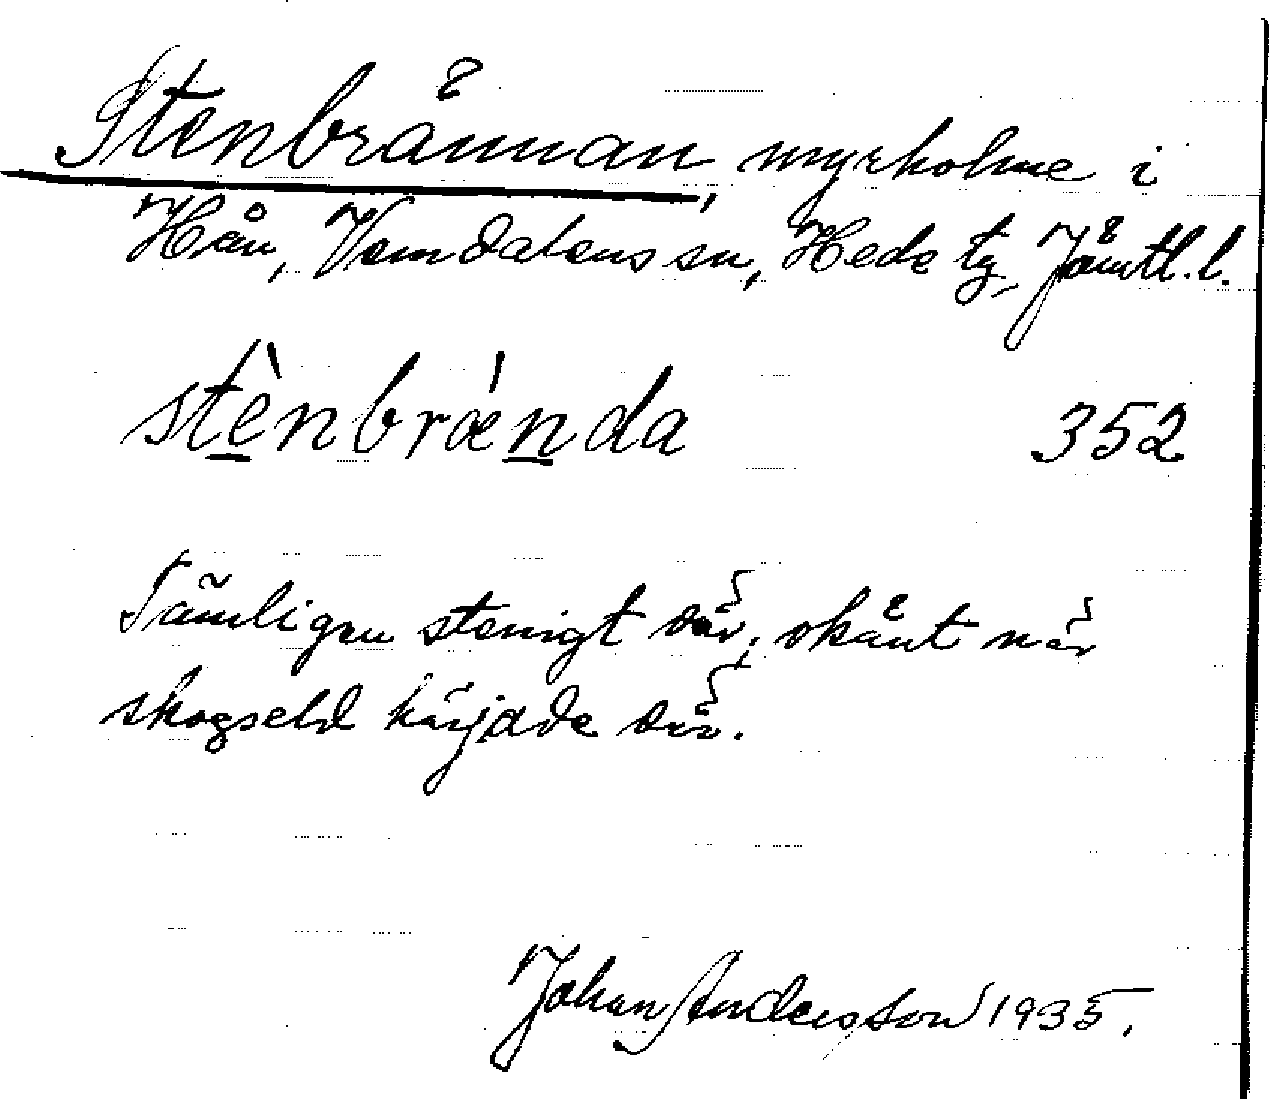 Stenbrännan, myrholme i
Hån, Vemdalens sn, Hede tg, Jämtl. l.
stènbrǽnda 352
Tämligen stenigt där, okänt när
skogseld härjade där.
Johan Andersson 1935.